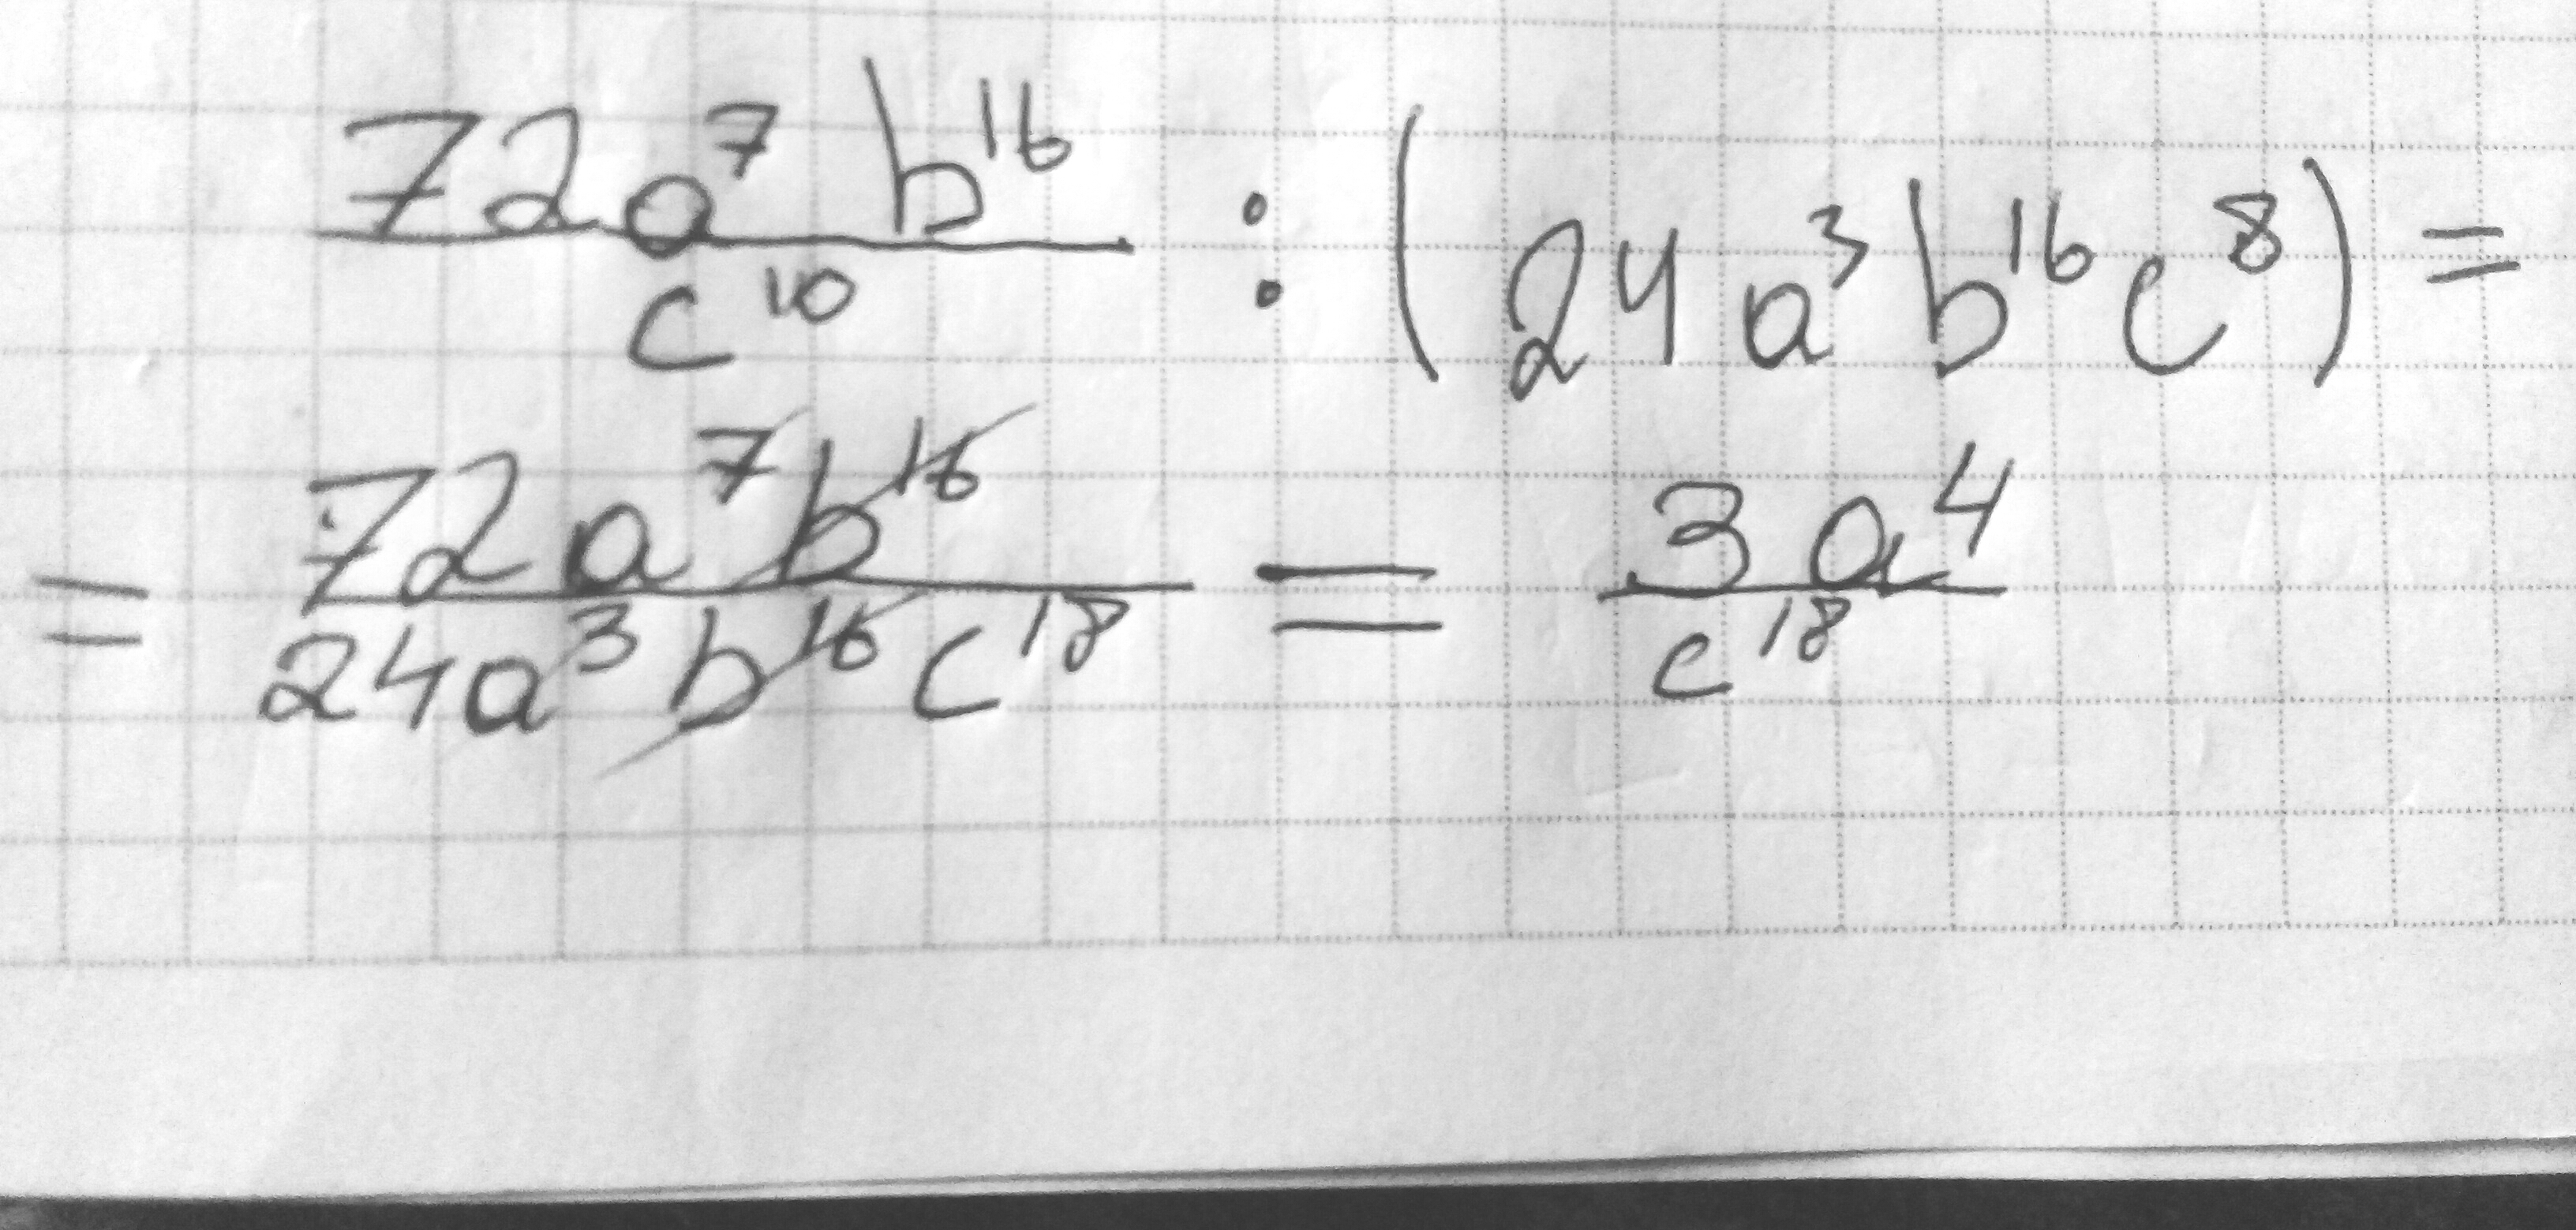 72a⁷b¹⁶/c¹⁰ : (24a³b¹⁶c⁸) =
= 72a⁷b¹⁶/24a³b¹⁶c¹⁸ = 3a⁴/c¹⁸